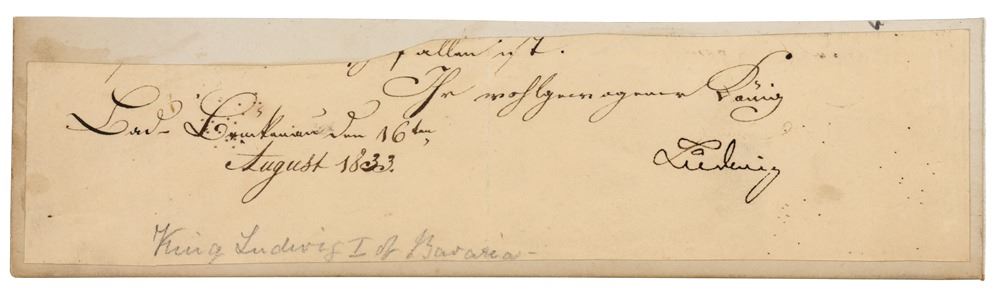 fallen ist.
Ihr wohlgewogener König
Bad-Brückenau den 16ten
August 1833.
Ludwig
King Ludwig I of Bavaria-